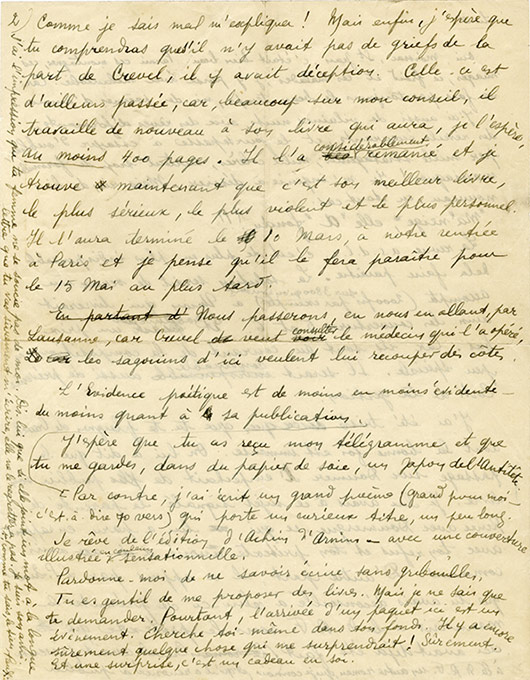 2
Comme je sais mal m'expliquer ! Mais enfin, j'espère que
tu comprendras qu'il n'y avait pas de griefs de la
part de Crevel, il y avait déception. Celle-ci est
d'ailleurs passée, car, beaucoup sur mon conseil, il
travaille de nouveau à son livre qui aura, je l'espère,
au moins 400 pages. Il l'a considérablement remanié et je
trouve maintenant que c'est son meilleur livre,
le plus sérieux, le plus violent et le plus personnel.
Il l'aura terminé le 10 Mars, à notre rentrée
à Paris et je pense qu'il le fera paraître pour
le 15 Mai au plus tard.
En partant d' Nous passerons, en nous en allant, par
Lausanne, car Crevel veut consulter le médecin qui l'a opéré,
car les sagouins d'ici veulent lui recouper des côtes.
L'Evidence poétique est de moins en moins évidente -
du moins quant à sa publication.
J'espère que tu as reçu mon télégramme et que
tu me gardes, dans du papier de soie, un Japon de l'Antitête.
Par contre, j'ai écrit un grand poème (grand pour moi
c'est à dire 70 vers) qui porte un curieux titre, un peu long.
Je rêve de l'édition d'Achim d'Arnim - avec une couverture
illustrée en couleurs sensationnelle.
Pardonne-moi de ne savoir écrire sans gribouilles.
Tu es gentil de me proposer des livres. Mais je ne sais que
te demander. Pourtant, l'arrivée d'un paquet ici est un
évènement. Cherche toi-même dans ton fonds. Il y a encore
sûrement quelque chose qui me surprendrait ! Sûrement.
Et une surprise, c'est un cadeau en soi.
J'ai l'impression que ta femme ne se soucie pas de moi. Dis lui que si elle joint un mot à ta longue
lettre que tu vas sûrement m'écrire, elle ne le regrettera pas.